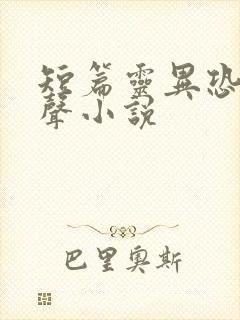 短篇靈異恐
聲小説
巴里奧斯